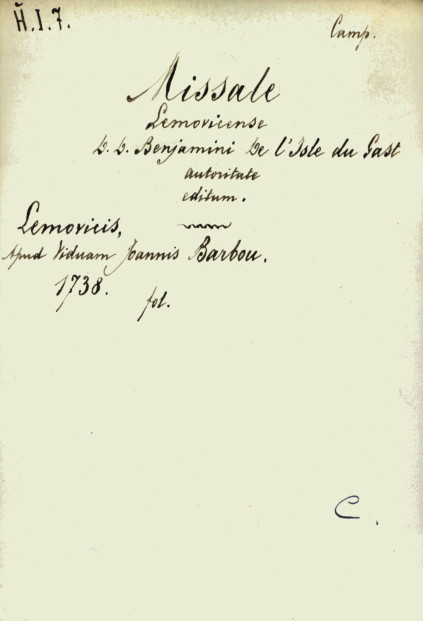 Ȟ.I.7.
Camp.
Missale
Lemovicense
D. D. Benjamini De l'Isle du Gast
autoritate
editum.
Lemovicis,
Apud Viduam Joannis Barbou.
1738.
fol.
C.